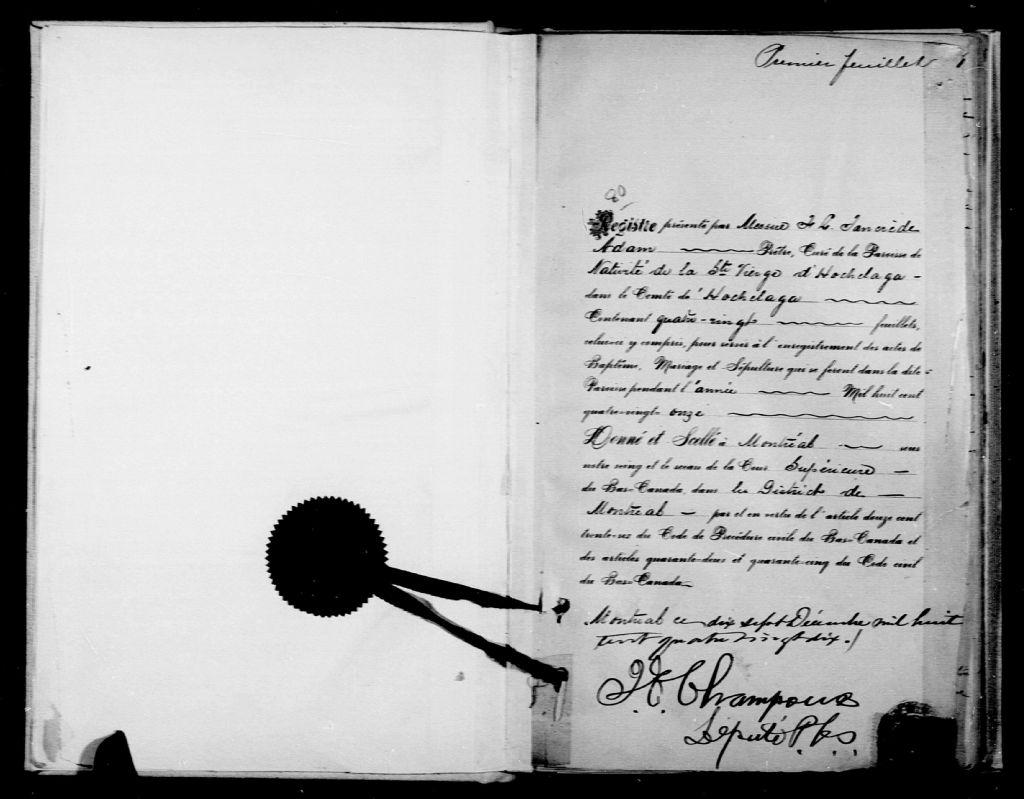 Premier feuillet 1
80
Registre présenté par Messire F. L. Tancrède
Adam Prêtre, Curé de la Paroisse de
Nativité de la Ste Vierge d'Hochelaga
dans le Comté de Hochelaga
Contenant quatre-vingt feuillets,
celui-ci y compris, pour servir à l'enregistrement des actes de
Baptême, Mariage et Sépulture qui se feront dans la dite
Paroisse pendant l'année Mil huit cent
quatre-vingt onze
Donné et Scellé à Montréal sous
notre seing et le sceau de la Cour Supérieure
du Bas-Canada, dans le District de
Montréal par et en vertu de l'article douze cent
trente-six du Code de Procédure civile du Bas-Canada et
des articles quarante-deux et quarante-cinq du Code civil
du Bas-Canada
Montréal ce dix sept Décembre mil huit
cent quatre vingt dix.
Champoux
Député P.